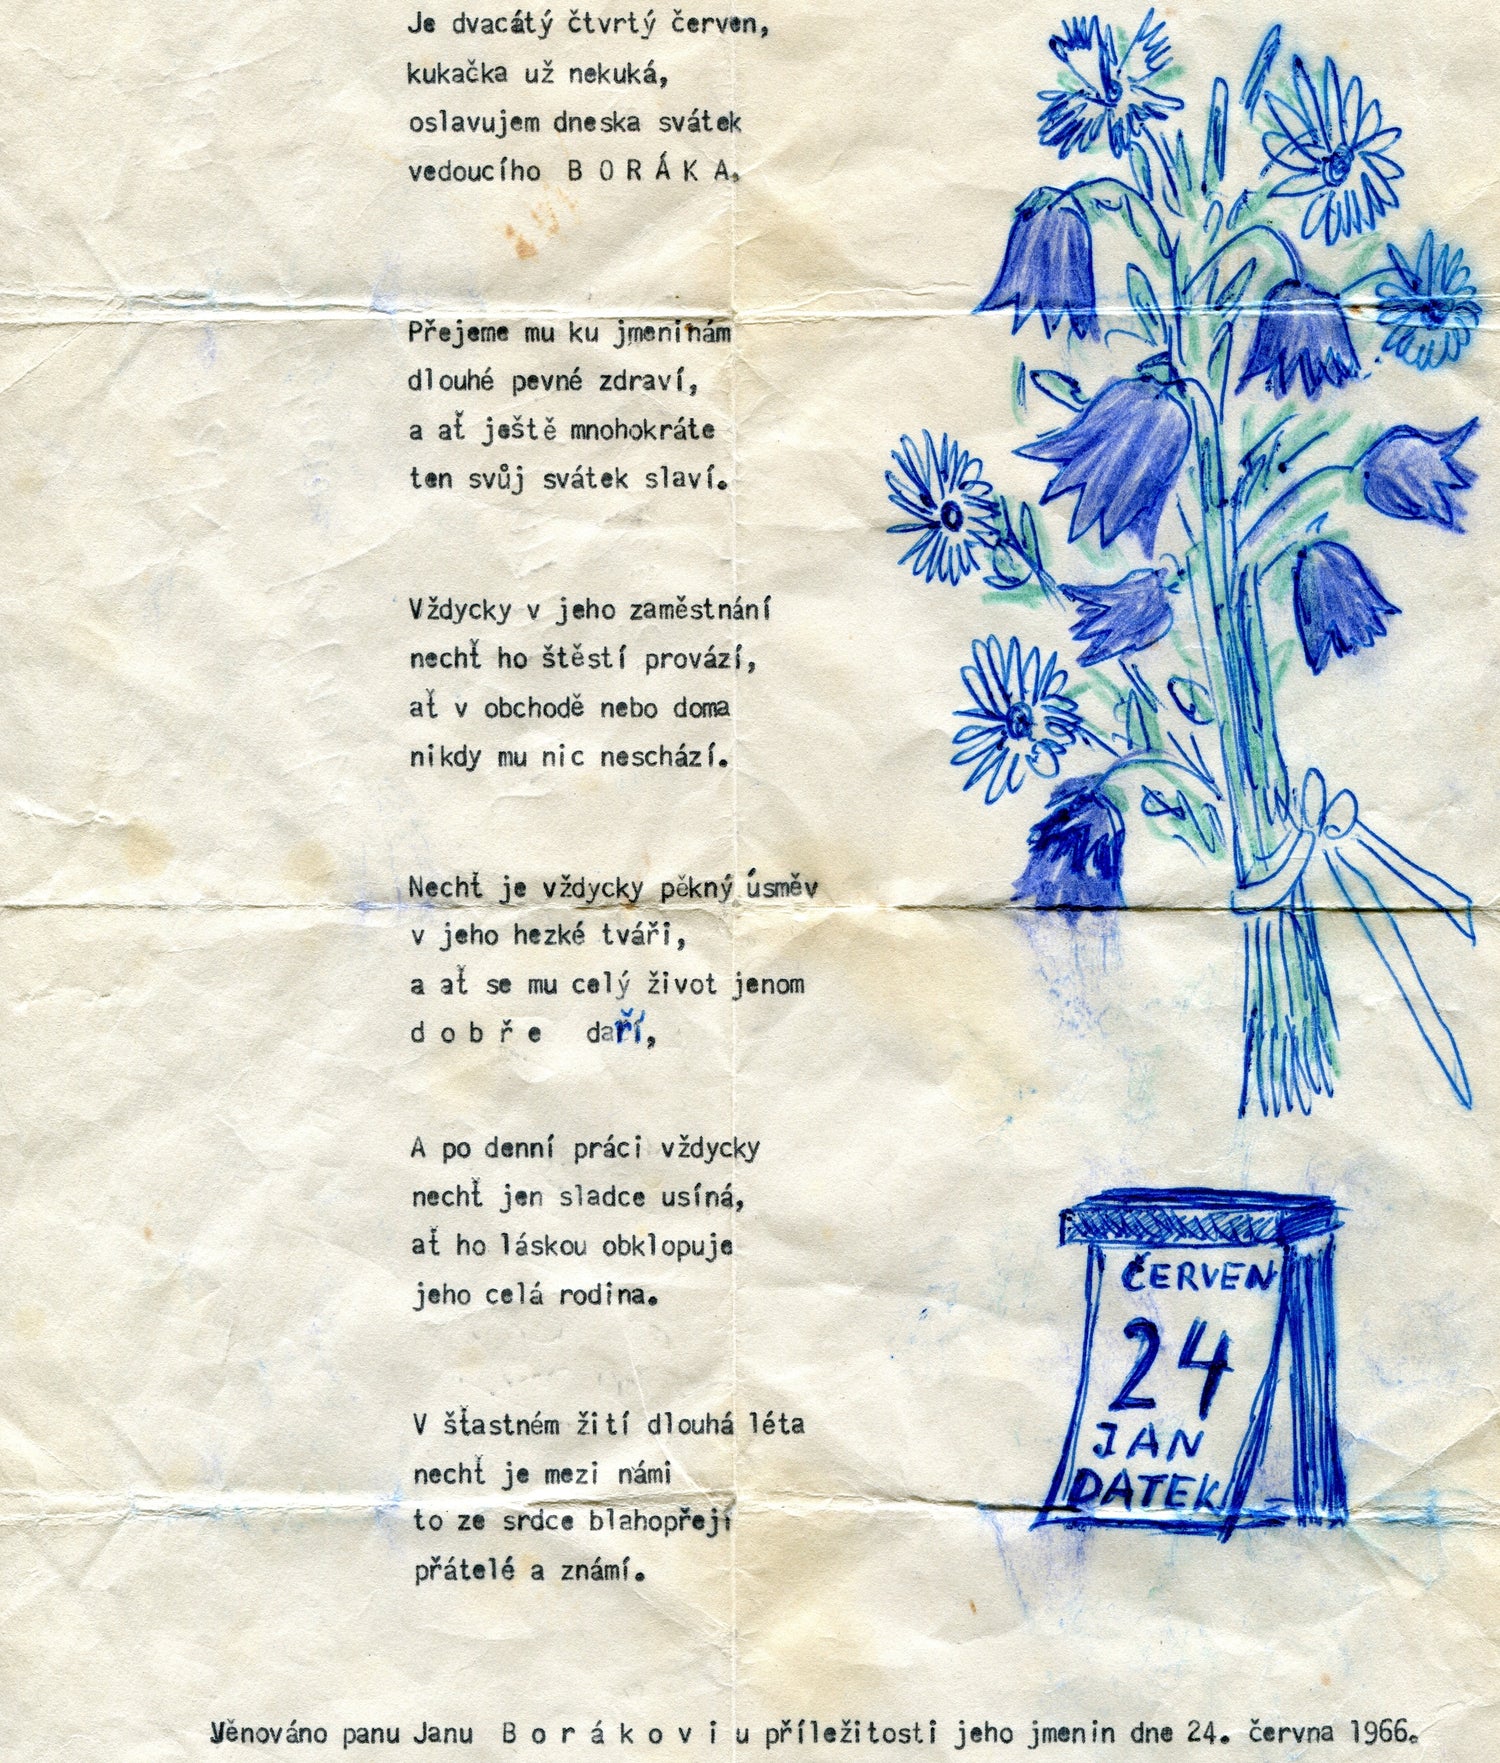 Je dvacátý čtvrtý červen,
kukačka už nekuká,
oslavujem dneska svátek
vedoucího B O R Á K A.
Přejeme mu ku jmeninám
dlouhé pevné zdraví,
a ať ještě mnohokráte
ten svůj svátek slaví.
Vždycky v jeho zaměstnání
nechť ho štěstí provází,
ať v obchodě nebo doma
nikdy mu nic neschází.
Nechť je vždycky pěkný úsměv
v jeho hezké tváři,
a ať se mu celý život jenom
d o b ř e daří,
A po denní práci vždycky
nechť jen sladce usíná,
ať ho láskou obklopuje
jeho celá rodina.
V šťastném žití dlouhá léta
nechť je mezi námi
to ze srdce blahopřejí
přátelé a známí.
ČERVEN
24
JAN
DATEK
Věnováno panu Janu B o r á k o v i u příležitosti jeho jmenin dne 24. června 1966.